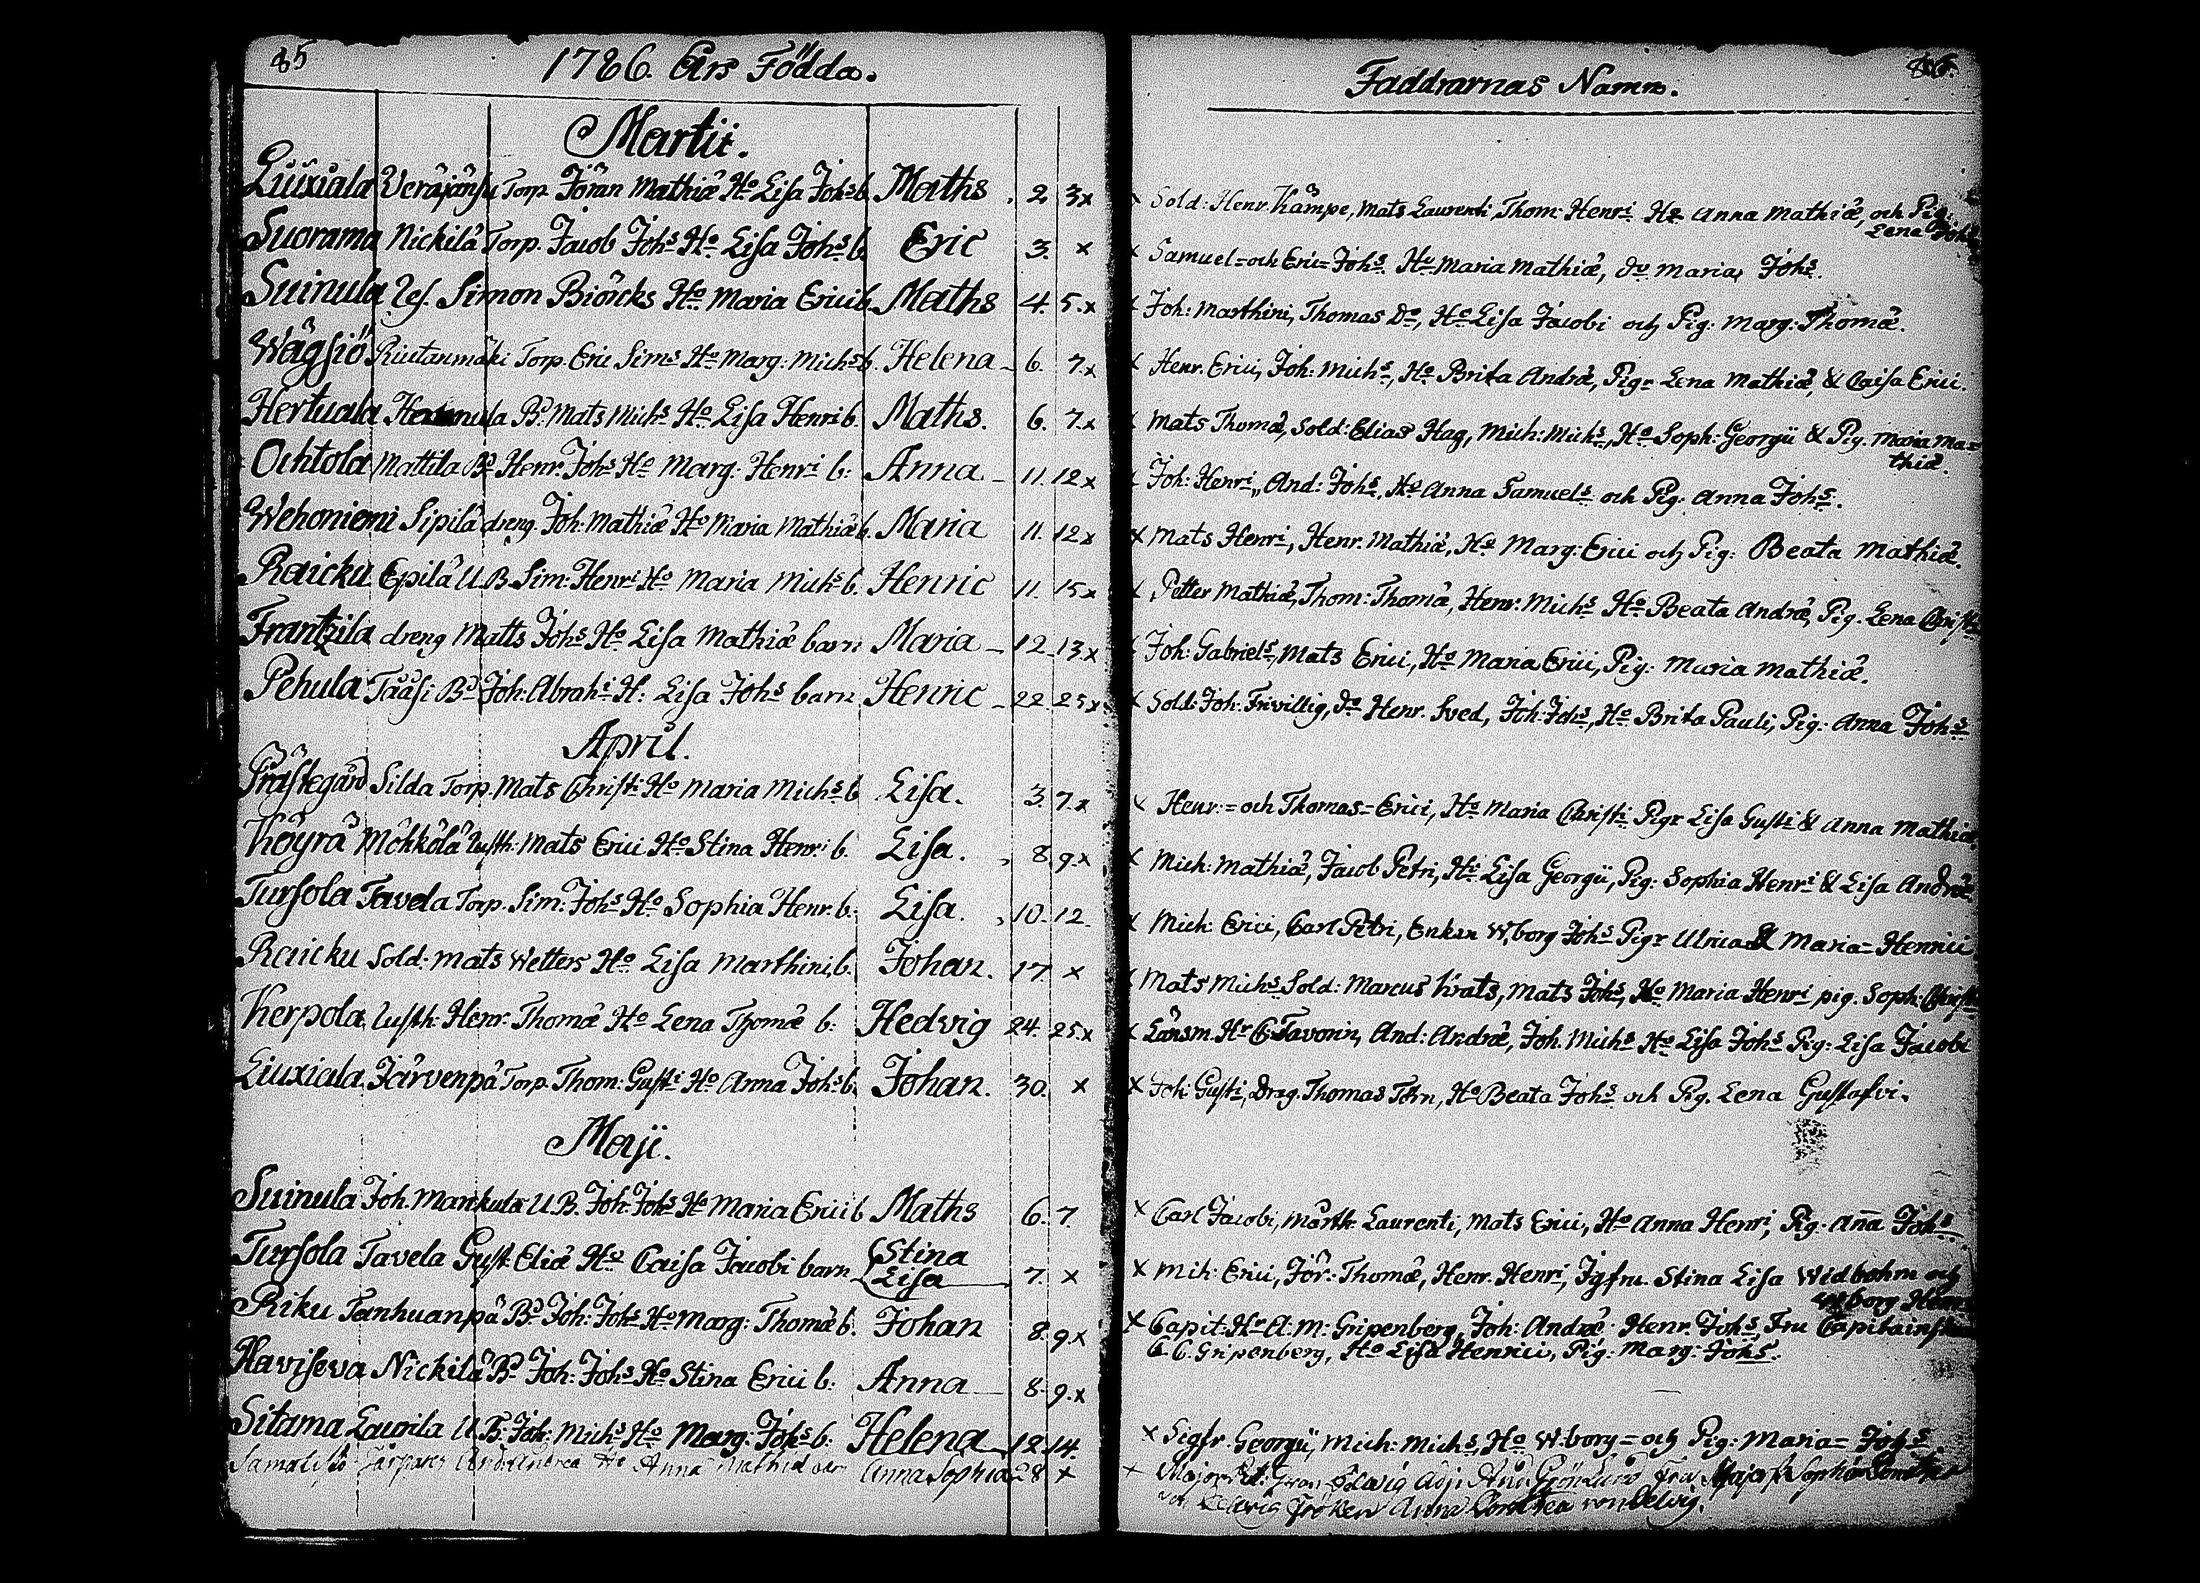 85
1786. Års Födda.
Martii.
Liuxiala Veräjänsu Torp. Jöran Mathiæ Ho Lisa Johs b. Maths . 2. 3x
Suorama Nickilä Torp. Jacob Johs Ho Lisa Johs b. Eric 3. x
Suinula Ref. Simon Biörcks Ho Maria Erici b. Maths 4. 5.x
Wägsiö Riutanmäki Torp. Eric Sims Ho Marg: Michs b. Helena 6. 7.x
Hertuala B: Mats Michs Ho Lisa Henri b. Maths. 6. 7.x
Ochtola Mattila Bd Henr. Johs Ho Marg: Henri b: Anna 11. 12x
Wehoniemi Sipilä dreng. Joh: Mathiæ Ho Maria Mathiæ b. Maria 11. 12x
Raicku Epilä U.B. Sim: Henri Ho Maria Michs b. Henric 11. 15x
Frantzila dreng Matts Johs Ho Lisa Mathiæ barn Maria 12. 13x
Pehula Tääsi Bd Joh: Abrahi H: Lisa Johs barn Henric 22. 25x
April.
Prästegård Silda Torp. Mats Christi Ho Maria Michs b Lisa. 3. 7.x
Köyrä Mökkölä Insth: Mats Erici Ho Stina Henri b. Lisa. 8. 9.x
Tursola Tavela Torp. Sim: Johs Ho Sophia Henr. b. Lisa. 10. 12
Raicku Sold: Mats Wetters Ho Lisa Marthini b. Johan. 17. x
Kerpola Insth: Henr. Thomæ Ho Lena Thomæ b: Hedvig 24. 25x
Liuxiala Järvenpä Torp. Thom: Gusti Ho Anna Johs b. Johan. 30. x
Maji.
Suinula Joh. Mankula U.B. Joh: Johs Ho Maria Erici b Maths 6. 7.
Tursola Tavela Gust. Eliæ Ho Caisa Jacobi barn Stina
Lisa 7. x
Riku Tanhuanpä Bd Joh: Johs Ho Marg: Thomæ b. Johan 8. 9x
Haviseva Nickilä Bd Joh: Johs Ho Stina Erici b: Anna 8. 9.x
Sitama Laurila U.B. Joh: Michs Ho Marg. Johs b: Helena 12. 14.
Anna Anna Sophia 28 x
Faddrarnas Namn.
x Sold: Henr. Kämpe, Mats Laurenti, Thom: Henri Ho Anna Mathiæ, och Pig:
Lena Johs
x Samuel= och Eric= Johs. Ho Maria Mathiæ, do Maria Johs.
x Joh: Marthini, Thomas Do, Ho Lisa Jacobi och Pig: Marg: Thomæ.
x Henr. Erici, Joh: Michs, Ho Brita Andræ, Pigr Lena Mathiæ, & Caisa Erici.
x Mats Thomæ, Sold: Elias Hag, Mich: Michs, Ho Soph: Georgii & Pig. Maria Ma=
thiæ.
x Joh: Henri, And: Johs, Ho Anna Samuels och Pig: Anna Johs.
x Mats Henri, Henr. Mathiæ, Ho Marg: Erici och Pig: Beata Mathiæ.
x Petter Mathiæ, Thom: Thomæ, Henr: Michs Ho Beata Andræ, Pig. Lena Christi
x Joh: Gabriels, Mats Erici, Ho Maria Erici, Pig: Maria Mathiæ.
x Sold: Joh: Frivillig, do Henr. Sved, Joh: Johs, Ho Brita Pauli, Pig: Anna Johs
x Henr:= och Thomas= Erici, Ho Maria Christi Pigr Lisa Gusti & Anna Mathiæ
x Mich: Mathiæ, Jacob Petri, Ho Lisa Georgii, Pig: Sophia Henri & Lisa Andræ
x Mich: Erici, Carl Petri, Enkan W.borg Johs Pigr Ulrica & Maria= Henrici
x Mats Michs Sold: Marcus Krats, Mats Johs, Ho Maria Henri pig. Soph: Christi
x Länsm. Hr C. Tavonin, And: Andræ, Joh. Michs Ho Lisa Johs Pig: Lisa Jacobi
x Joh: Gusti, Drag. Thomas Törn, Ho Beata Johs och Pig. Lena Gustafvi.
x Carl Jacobi, Märth: Laurenti, Mats Erici, Ho Anna Henri, Pig: Aña Johs
x Mich: Erici, Jör: Thomæ, Henr. Henri, Jgfru. Stina Lisa Widbohm och
W.borg Henr
x Capit: Hr A: M: Gripenberg, Joh: Andræ Henr. Johs, Fru Capitainskan
C. C. Gripenberg, Ho Lisa Henrici, Pig: Marg: Johs.
x Sigfr. Georgii, Mich: Michs, Ho W:borg= och Pig: Maria= Johs
x Major Fru Sophia
Fröken Anna Dorothea von Delvig.